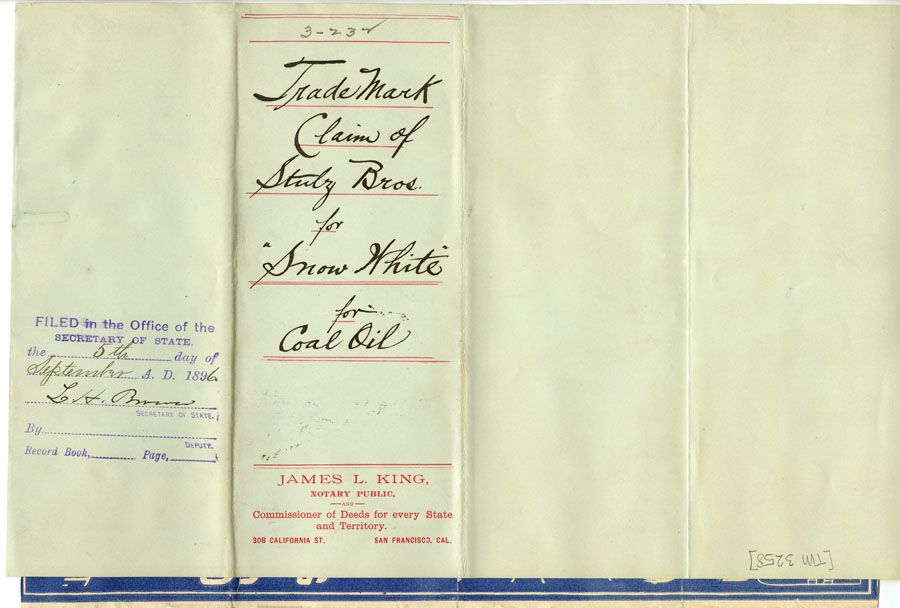 3-232
Trade Mark
Claim of
Stulz Bros.
for
"Snow White"
for
Coal Oil
FILED in the Office of the
SECRETARY OF STATE.
the 5th day of
September A. D. 1896
L. H. Brown
SECRETARY OF STATE.
By
DEPUTY.
Record Book, Page,
JAMES L. KING,
NOTARY PUBLIC,
—AND—
Commissioner of Deeds for every State
and Territory.
308 CALIFORNIA ST. SAN FRANCISCO, CAL.
[TM 3258]